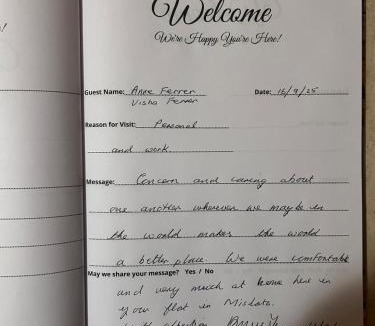 !
Welcome
We're Happy You're Here!
Guest Name: Anne Ferrer
Date: 15/9/25
Visha Ferrer
Reason for Visit: Personal
and work
Message: Concern and caring about
one another wherever we may be in
the world makes the world
a better place. We were comfortable
May we share your message? Yes / No
and very much at home here in
your flat in Misdata.